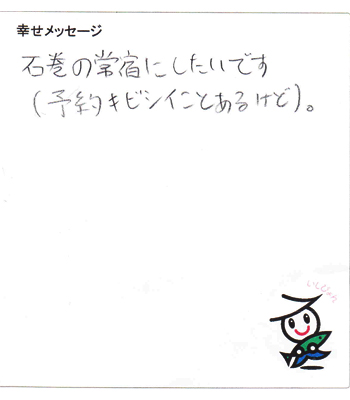 幸せメッセージ
石巻の常宿にしたいです
(予約キビシイことあるけど)。